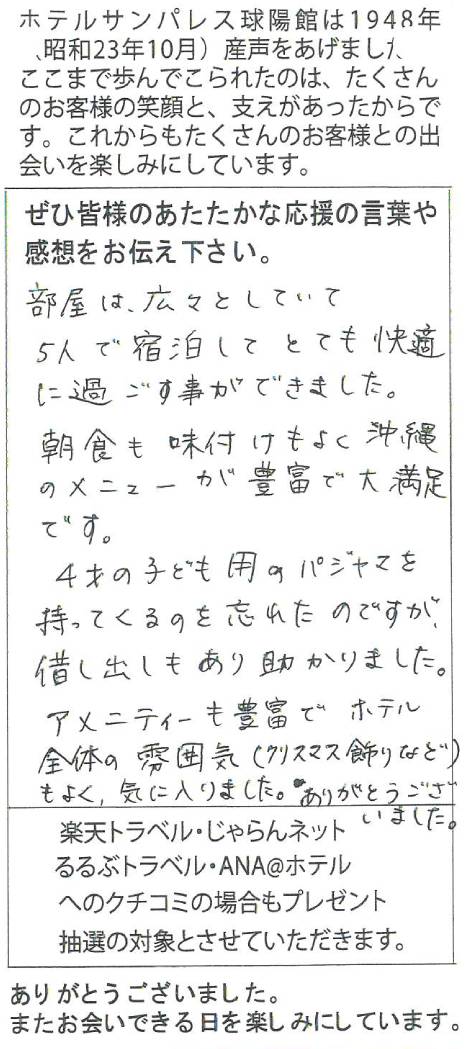 ホテルサンパレス球陽館は1948年
昭和23年10月）産声をあげました
ここまで歩んでこられたのは、たくさん
のお客様の笑顔と、支えがあったからで
す。これからもたくさんのお客様との出
会いを楽しみにしています。
ぜひ皆様のあたたかな応援の言葉や
感想をお伝え下さい。
部屋は、広々としていて
5人で宿泊してとても快適
に過ごす事ができました。
朝食も味付けもよく沖縄
のメニューが豊富で大満足
です。
4才の子ども用のパジャマを
持ってくるのを忘れたのですが、
借し出しもあり助かりました。
アメニティーも豊富でホテル
全体の雰囲気(クリスマス飾りなど)
もよく、気に入りました。ありがとうござ
いました。
楽天トラベル・じゃらんネット
るるぶトラベル・ANA@ホテル
へのクチコミの場合もプレゼント
抽選の対象とさせていただきます。
ありがとうございました。
またお会いできる日を楽しみにしています。